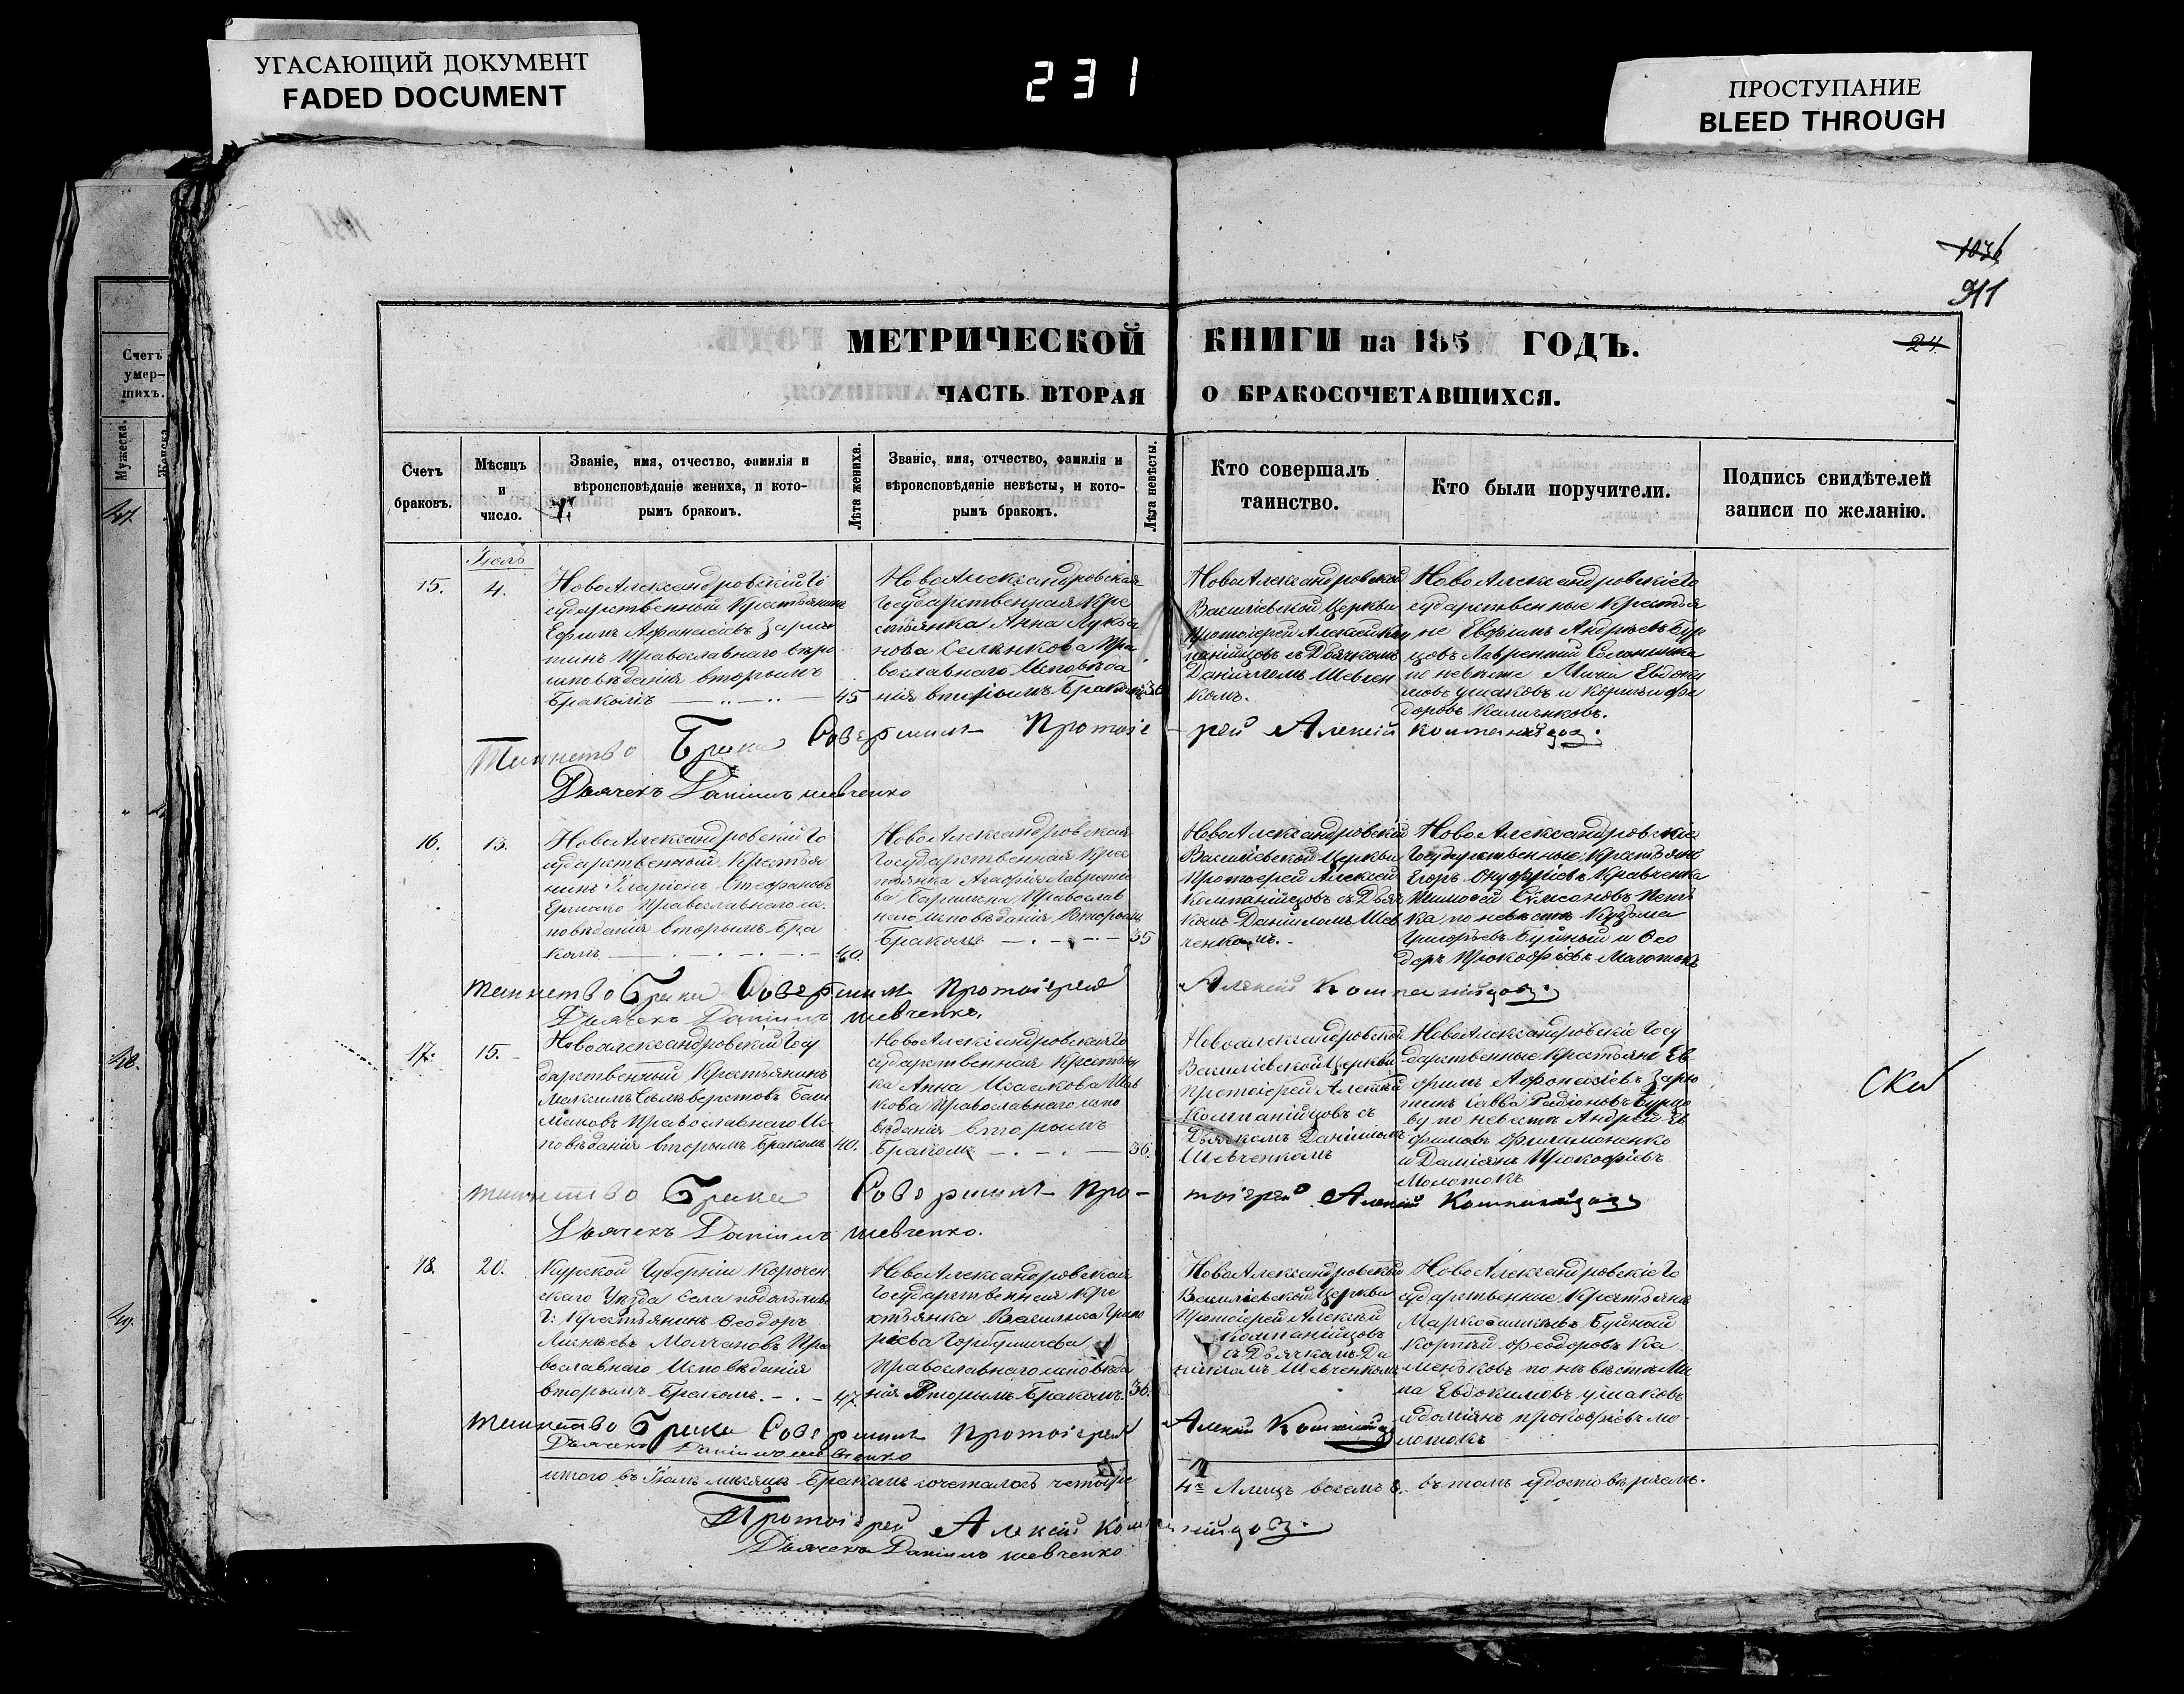 УГАСАЮЩИЙ ДОКУМЕНТ
FADED DOCUMENT
231
ПРОСТУПАНИЕ
BLEED THROUGH
1036
911
24.
МЕТРИЧЕСКОЙ КНИГИ на 185 ГОДЪ.
ЧАСТЬ ВТОРАЯ О БРАКОСОЧЕТАВШИХСЯ.
Счетъ
умер-
шихъ.
Мужеска.
Женска
47.
48.
49.
Счетъ
браковъ.
Мѣсяцъ
и
число.
Званіе, имя, отчество, фамилія и
вѣроисповѣданіе жениха, и кото-
рымъ бракомъ.
Лѣта жениха.
Званіе, имя, отчество, фамилія и
вѣроисповѣданіе невѣсты, и кото-
рымъ бракомъ.
Лѣта невѣсты.
Кто совершалъ
таинство.
Кто были поручители.
Подпись свидѣтелей
записи по желанію.
15.
4.
НовоАлександровскій Го
сударственный Крестьянинъ
Ефимъ Афанасіевъ
Православнаго вѣро
исповѣданія вторымъ
Бракомъ
45
НовоАлександровская
Государственная Кре
стьянка Анна Лукья
нова Селенкова Пра
вославнаго Исповѣда
нія вторымъ Бракомъ
НовоАлександровской
Василіевской Церкви
Протоіерей Алексѣй Ком
панійцовъ съ Дьячкомъ
Даніиломъ Шевчен
комъ.
НовоАлександровскіе Го
сударственные Крестья
не Евфимъ Андреевъ Бур
цовъ Лаврентій
по невѣсте Мина Евдоки
мовъ Ушаковъ и Корнилій Фе
доровъ Каменковъ.
Таинство Брака Совершилъ Протоіерей Алексій Компанійцовъ.
Дьячекъ Даніилъ Шевченко
16.
13.
НовоАлександровскій Го
сударственный Крестья
нинъ Иларіонъ Стефановъ
Ермако Православнаго ис
повѣданія вторымъ Бра
комъ
40.
НовоАлександровская
Государственная Крес
тьянка Агафія Лавренті
ва Православ
наго исповѣданія Вторымъ
Бракомъ
35
НовоАлександровской
Василіевской Церкви
Протоіерей Алексѣй
Компанійцовъ съ Дьяч
комъ Даніиломъ Шев
ченкомъ.
НовоАлександровскіе
Государственные Крестьяне
Егоръ Онуфріевъ Кравченко
Тимофей
ка по невѣсте Кузьма
Григорьевъ Буйный и Фео
доръ Прокофіевъ Молотокъ
Таинство Брака Совершилъ Протоіерей Алексій Компанійцовъ.
Дьячекъ Даніилъ Шевченко.
17.
15.
НовоАлександровскій Госу
дарственный Крестьянинъ
Максимъ Сельверстовъ Баш
маковъ Православнаго Ис
повѣданія вторымъ Бракомъ
40.
НовоАлександровская Го
сударственная Крестьян
ка Анна Исаакова
кова Православнаго испо
вѣданія вторымъ
Бракомъ
36.
НовоАлександровской
Василіевской Церкви
Протоіерей Алексѣй
Компанійцовъ съ
Дьячкомъ Даніиломъ
Шевченкомъ
НовоАлександровскіе Госу
дарственные Крестьяне Ев
фимъ Афонасіевъ
Савва Родіоновъ Бурцо
ву по невѣсте Андрей Еф
фимовъ Филимоненко
и Даміянъ Прокофіевъ
Молотокъ
Таинство Брака Совершилъ Протоіерей Алексій Компанійцовъ
Дьячекъ Даніилъ Шевченко.
18.
20.
Курской Губерніи Корочен
скаго Уѣзда Села
Г: Крестьянинъ Феодоръ
Молчановъ Пра
вославнаго Исповѣданія
вторымъ Бракомъ.
47.
НовоАлександровская
Государственная Кре
стьянка Василиса Григо
рьева Горбушичева
Православнаго исповѣда
нія Вторымъ Бракомъ.
36.
НовоАлександровской
Василіевской Церкви
Протоіерей Алексѣй
Компанійцовъ
съ Дьячкомъ Да
ніиломъ Шевченкомъ
НовоАлександровскіе Го
сударственные Крестьяне
Марко Буйной
Корнѣй Феодоровъ Ка
меньковъ по невѣсте Ми
на Евдокимовъ Ушаковъ
и Даміянъ Прокофіевъ Мо
лотокъ
Таинство Брака Совершилъ Протоіерей Алексій
Дьячекъ Даніилъ Шевченко
итого въ Іюлѣ мѣсяцѣ Бракомъ сочеталось четыре 4 А лицъ восемь 8. въ томъ удостовѣряемъ.
Протоіерей Алексій Компанійцовъ.
Дьячекъ Даніилъ Шевченко